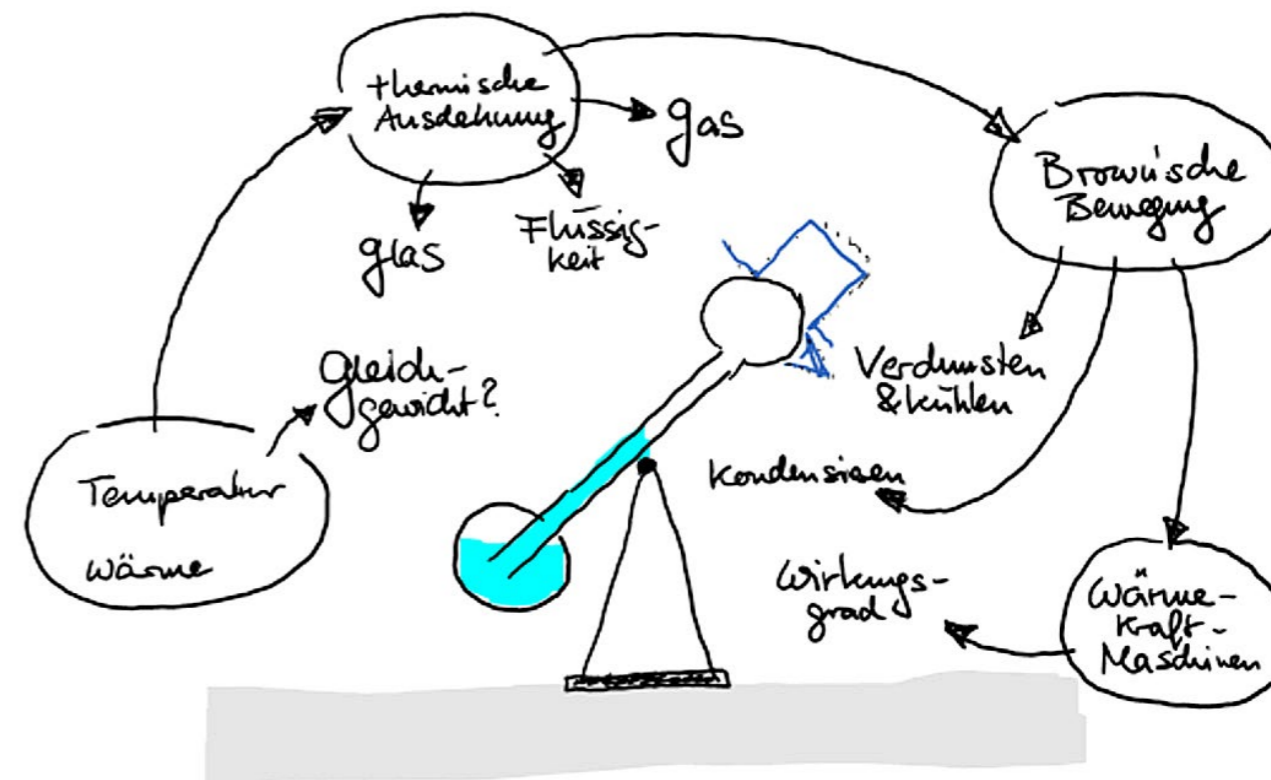 thermische
Ausdehnung
gas
glas
Flüssig-
keit
Brown'sche
Bewegung
Gleich-
gewicht?
Temperatur
Wärme
Verdunsten
& kühlen
Kondensieren
Wirkungs-
grad
Wärme-
kraft-
Maschinen